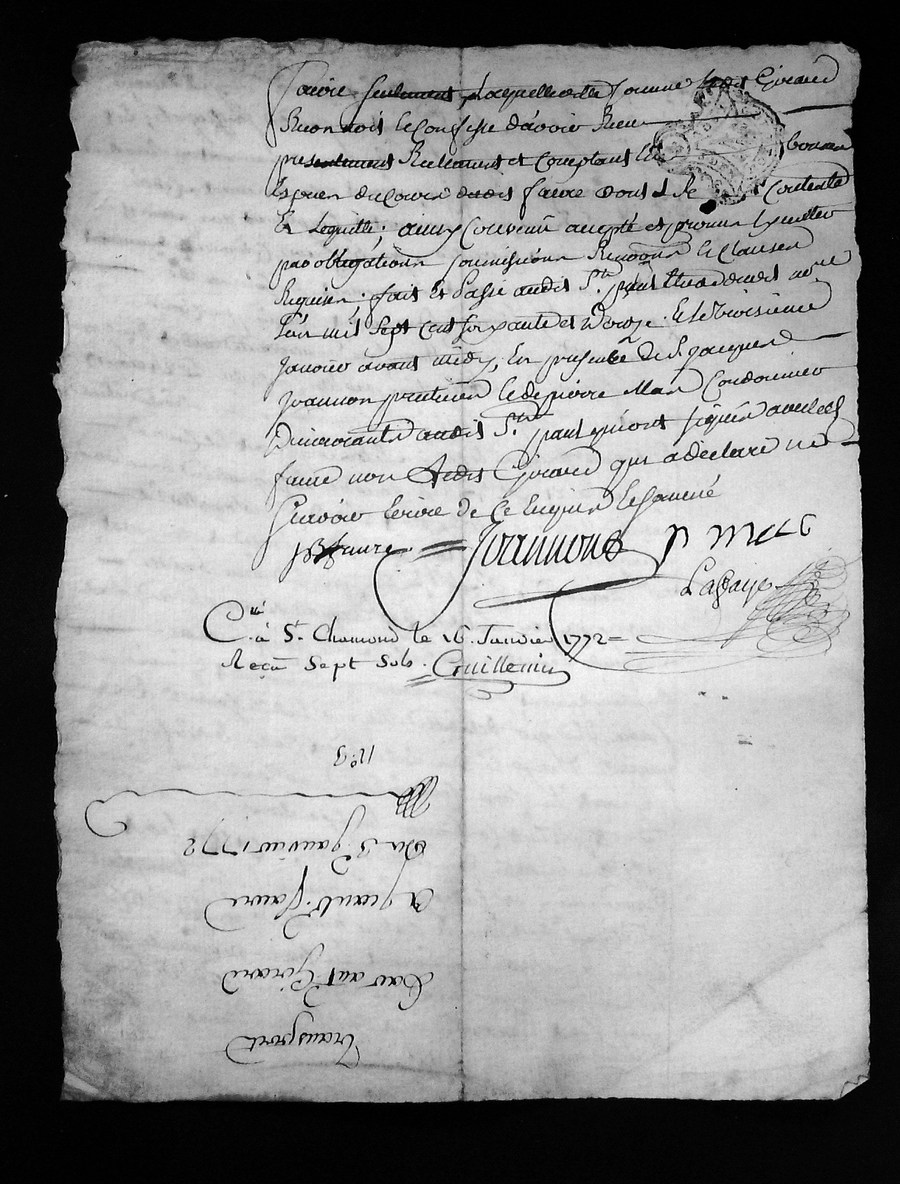 faure seulement laquelle ditte somme ledit Girard
Reconnois et confesse davoir Reçeu
presentement Reellement et comptant en bonnes
Especes du cours dudit faure dont il se Contente
Et Lequitte; ainsy Convenu accepté et promis Executer
par obligations soumissions Renoons Et Clauses
Requises; fait Et Passé audit St. paul
L'an mil Sept Cent soixante et Douze Et le troisieme
Janvier avant midy, En presence de Sr. Jacques
Joannon praticien et de pierre Mas Cordonnier
Demeurants audit St. paul qui ont signés avec led.
faure non ledit Girard qui a declaré ne
Sçavoir Ecrire de Ce Enquis Et Sommé
JB faure Joannons P MAS
Lafaye
C.lé à St. Chamond le 16. Janvier 1772
Reçu Sept Sols. Guillemin
N.o 9
Du 3. Janvier 1772
A Jean B. faure
Par ant. Girard
Transport